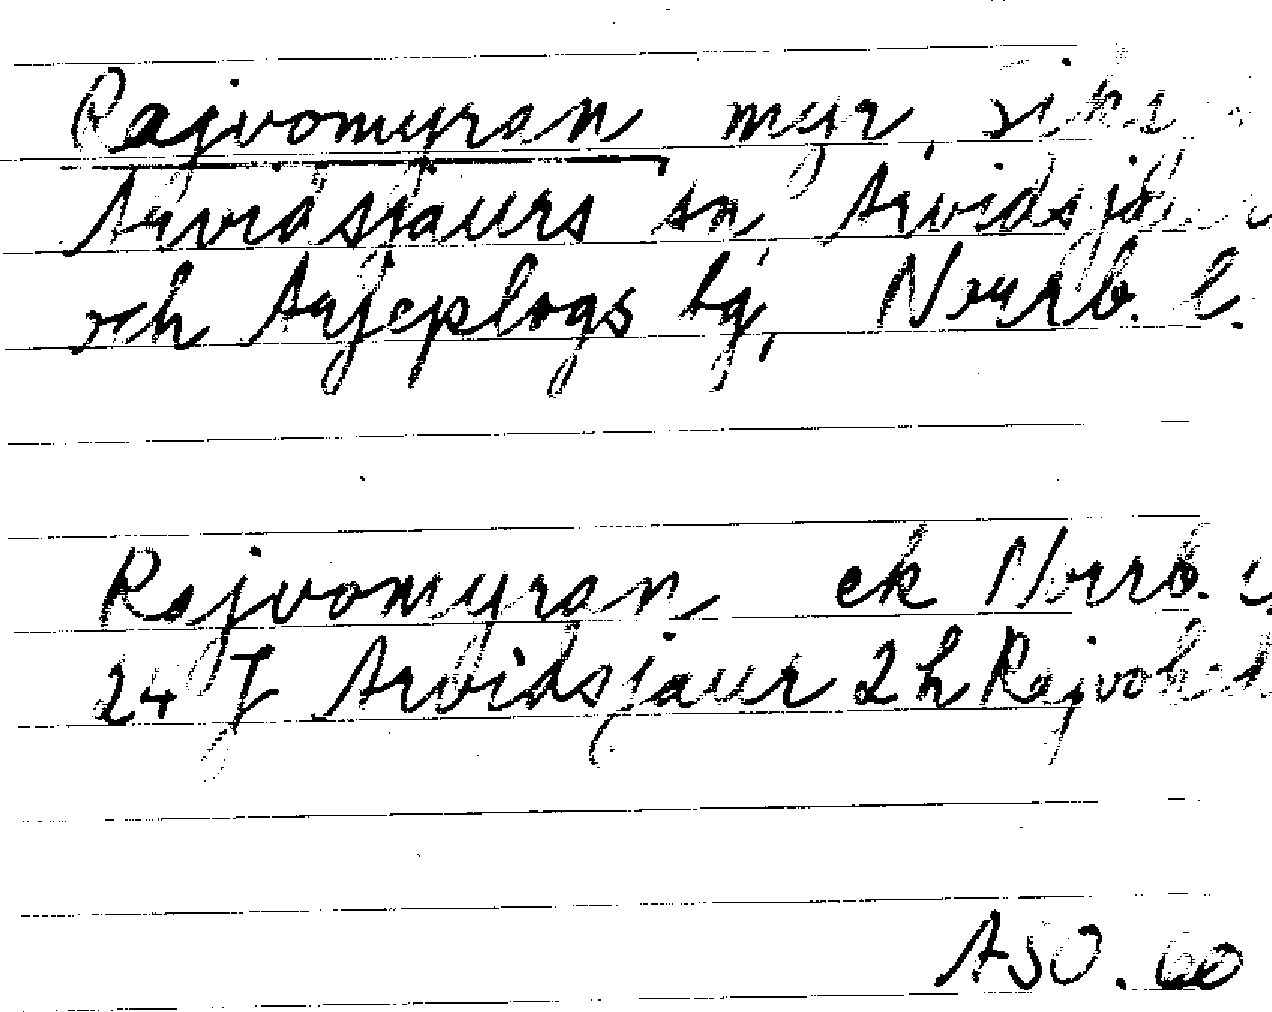 Rajvomyran myr,
Arvidsjaurs sn Arvidsjaurs
och Arjeplogs tg, Norrb. l.
Rajvomyran ek Norrb.
24 J Arvidsjaur 2 h Rajvohed
ASO. 60